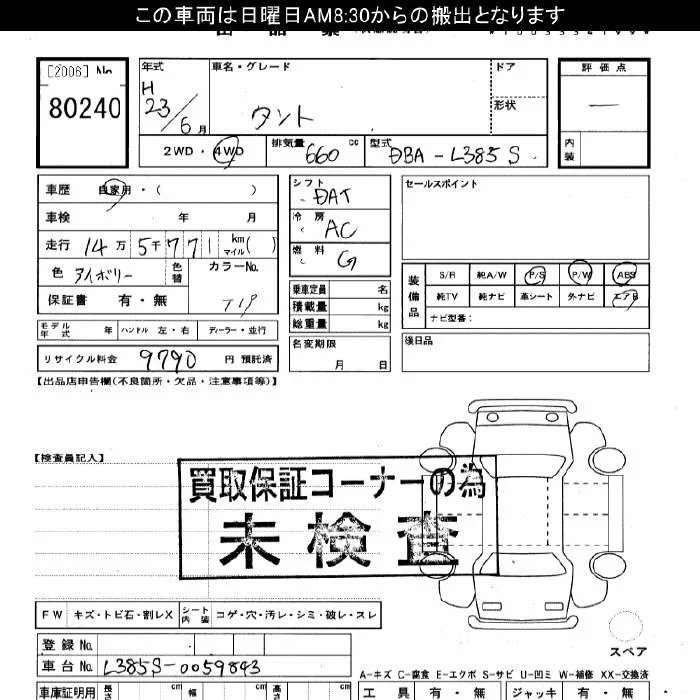 この車両は日曜日AM8:30からの搬出となります
[2006] No
80240
年式
H
23/6月
車名・グレード
タント
ドア
形状
評価点
—
内装
2WD・4WD
排気量 660 cc
型式 DBA-L385S
車歴 自家用・( )
車検 年 月
走行 14万5千771 km マイル( )
色 アイボリー 色替 カラーNo. T19
保証書 有・無
シフト DAT
冷房 AC
燃料 G
乗車定員 名
積載量 kg
総重量 kg
セールスポイント
装備品
S/R 純A/W P/S P/W ABS
純TV 純ナビ 革シート 外ナビ エアB
ナビ型番:
モデル年式 年 ハンドル 左・右 ディーラー・並行
リサイクル料金 9790 円 預託済
名変期限
月 日
後日品
【出品店申告欄(不良箇所・欠品・注意事項等)】
【検査員記入】
買取保証コーナーの為
未検査
FW キズ・トビ石・割レX シート内装 コゲ・穴・汚レ・シミ・破レ・スレ
スペア
登録No.
車台No. L385S-0059843
A-キズ C-腐食 E-エクボ S-サビ U-凹ミ W-補修 XX-交換済
車庫証明用 長さ cm 幅 cm 高さ cm
工具 有・無 ジャッキ 有・無